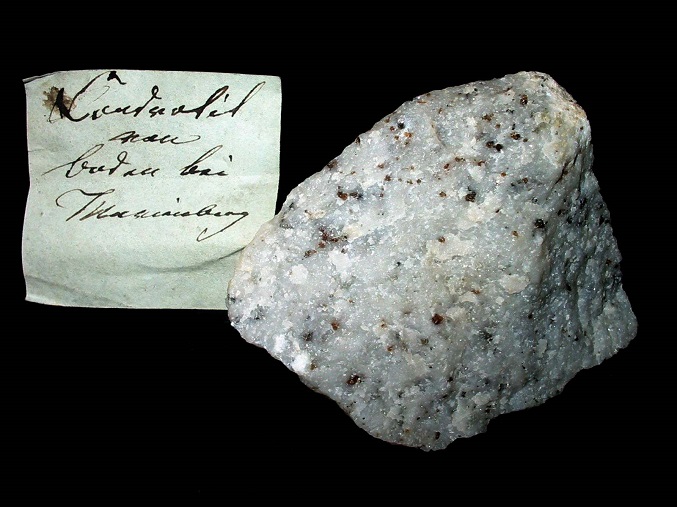 Condrodit
von
Boden bei
Marienberg